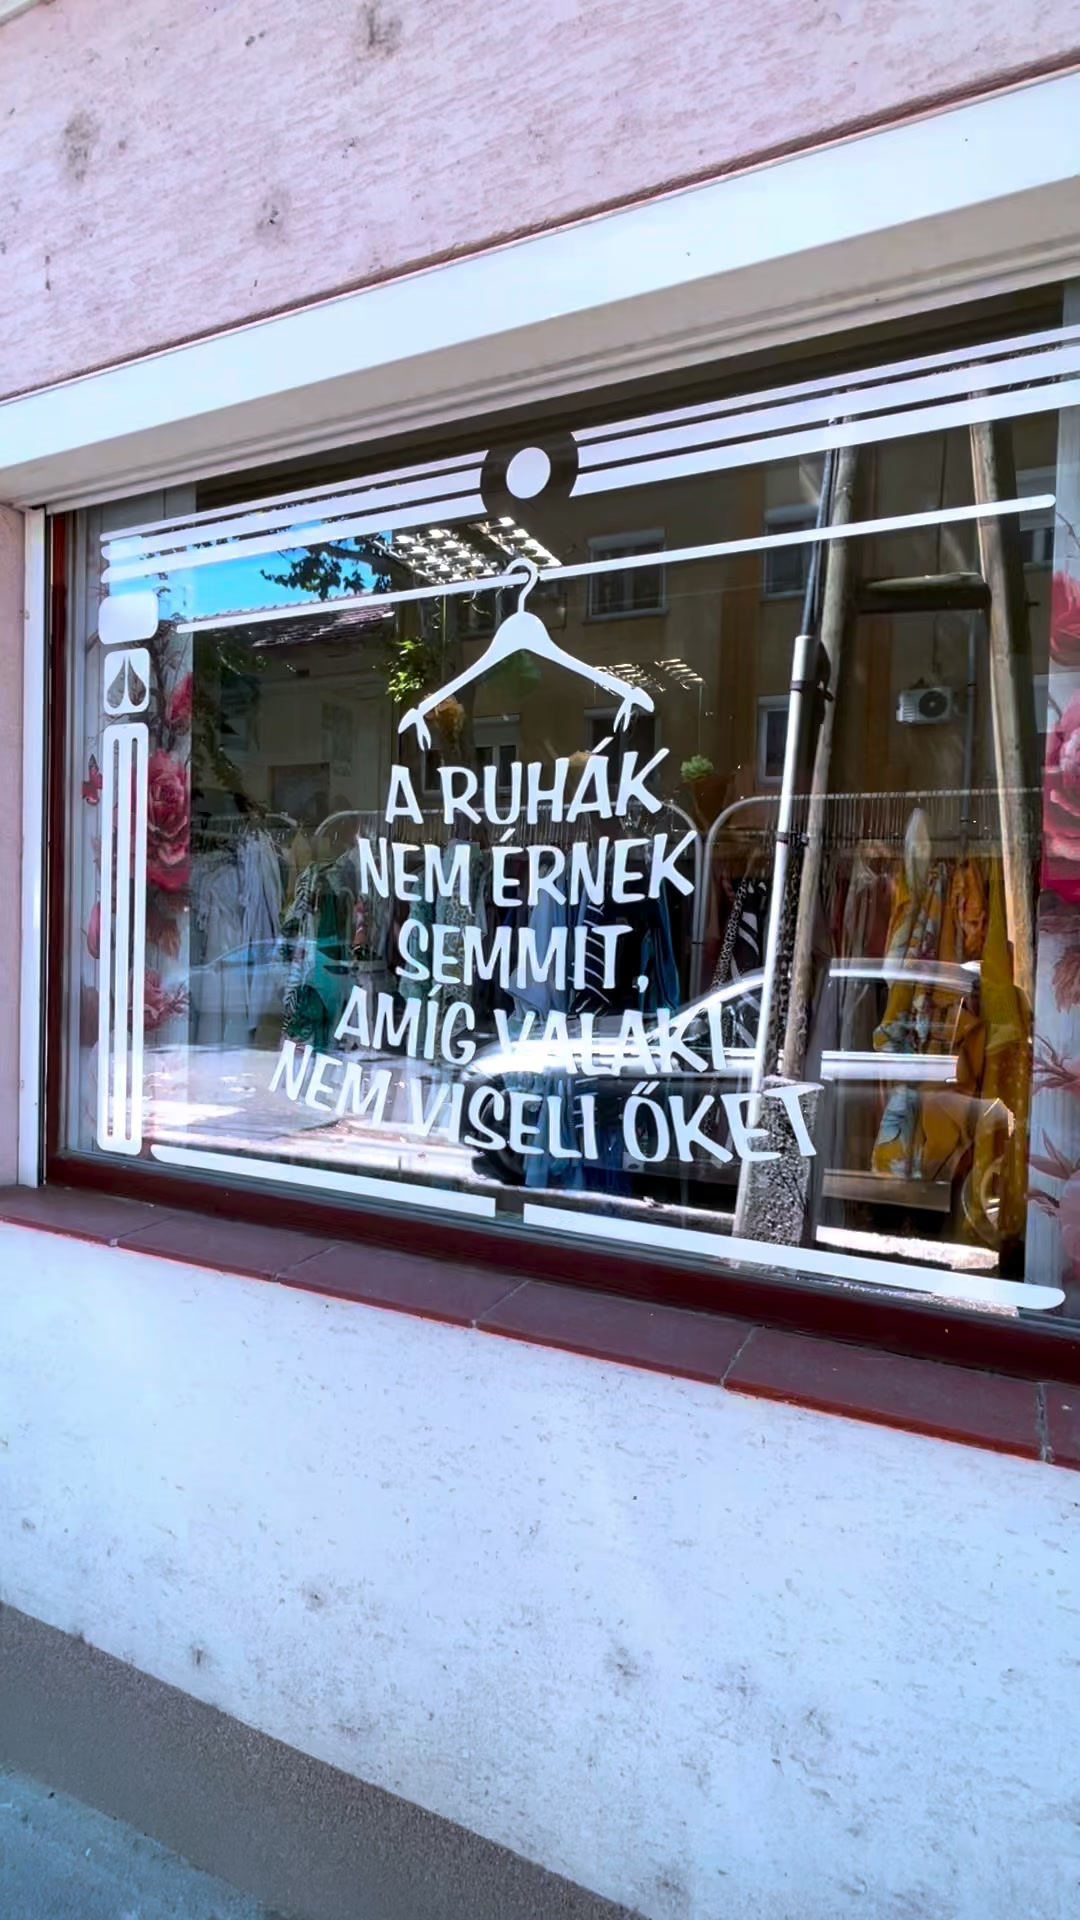 A RUHÁK
NEM ÉRNEK
SEMMIT,
AMÍG VALAKI
NEM VISELI ŐKET